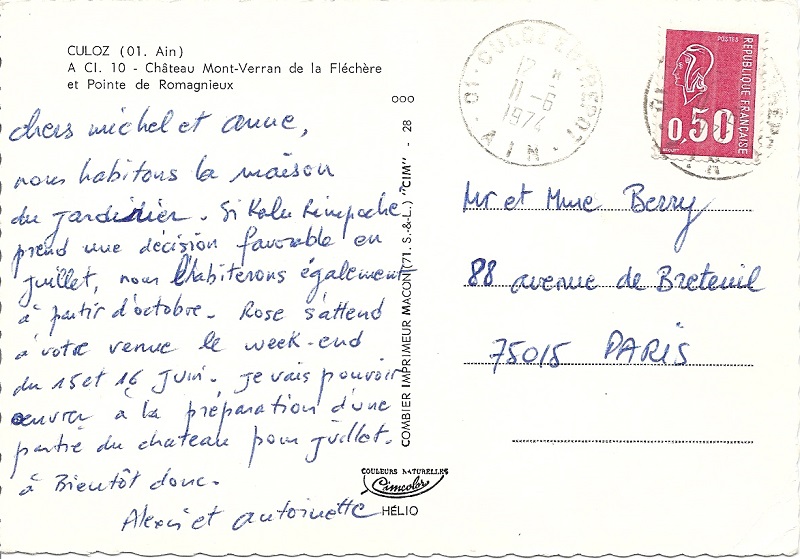 CULOZ (01. Ain)
A CI. 10 - Château Mont-Verran de la Fléchère
et Pointe de Romagnieux
chers michel et anne,
nous habitons la maison
du jardinier. Si Kalu Rimpoche
prend une décision favorable en
juillet, nous l'habiterons également
à partir d'octobre. Rose s'attend
à votre venue le week-end
du 15 et 16 Juin. Je vais pouvoir
œuvrer à la préparation d'une
partie du chateau pour juillet.
à Bientôt donc.
Alexis et antoinette
COMBIER IMPRIMEUR MACON (71. S.-&-L.) "CIM" - 28
COULEURS NATURELLES
Cimcolor
HÉLIO
12 H
11-6
1974
AIN
POSTES
RÉPUBLIQUE FRANÇAISE
0,50
Mr et Mme Berry
88 avenue de Breteuil
75015 PARIS